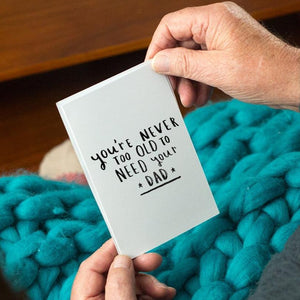 you're NEVER
TOO OLD TO
NEED your
DAD